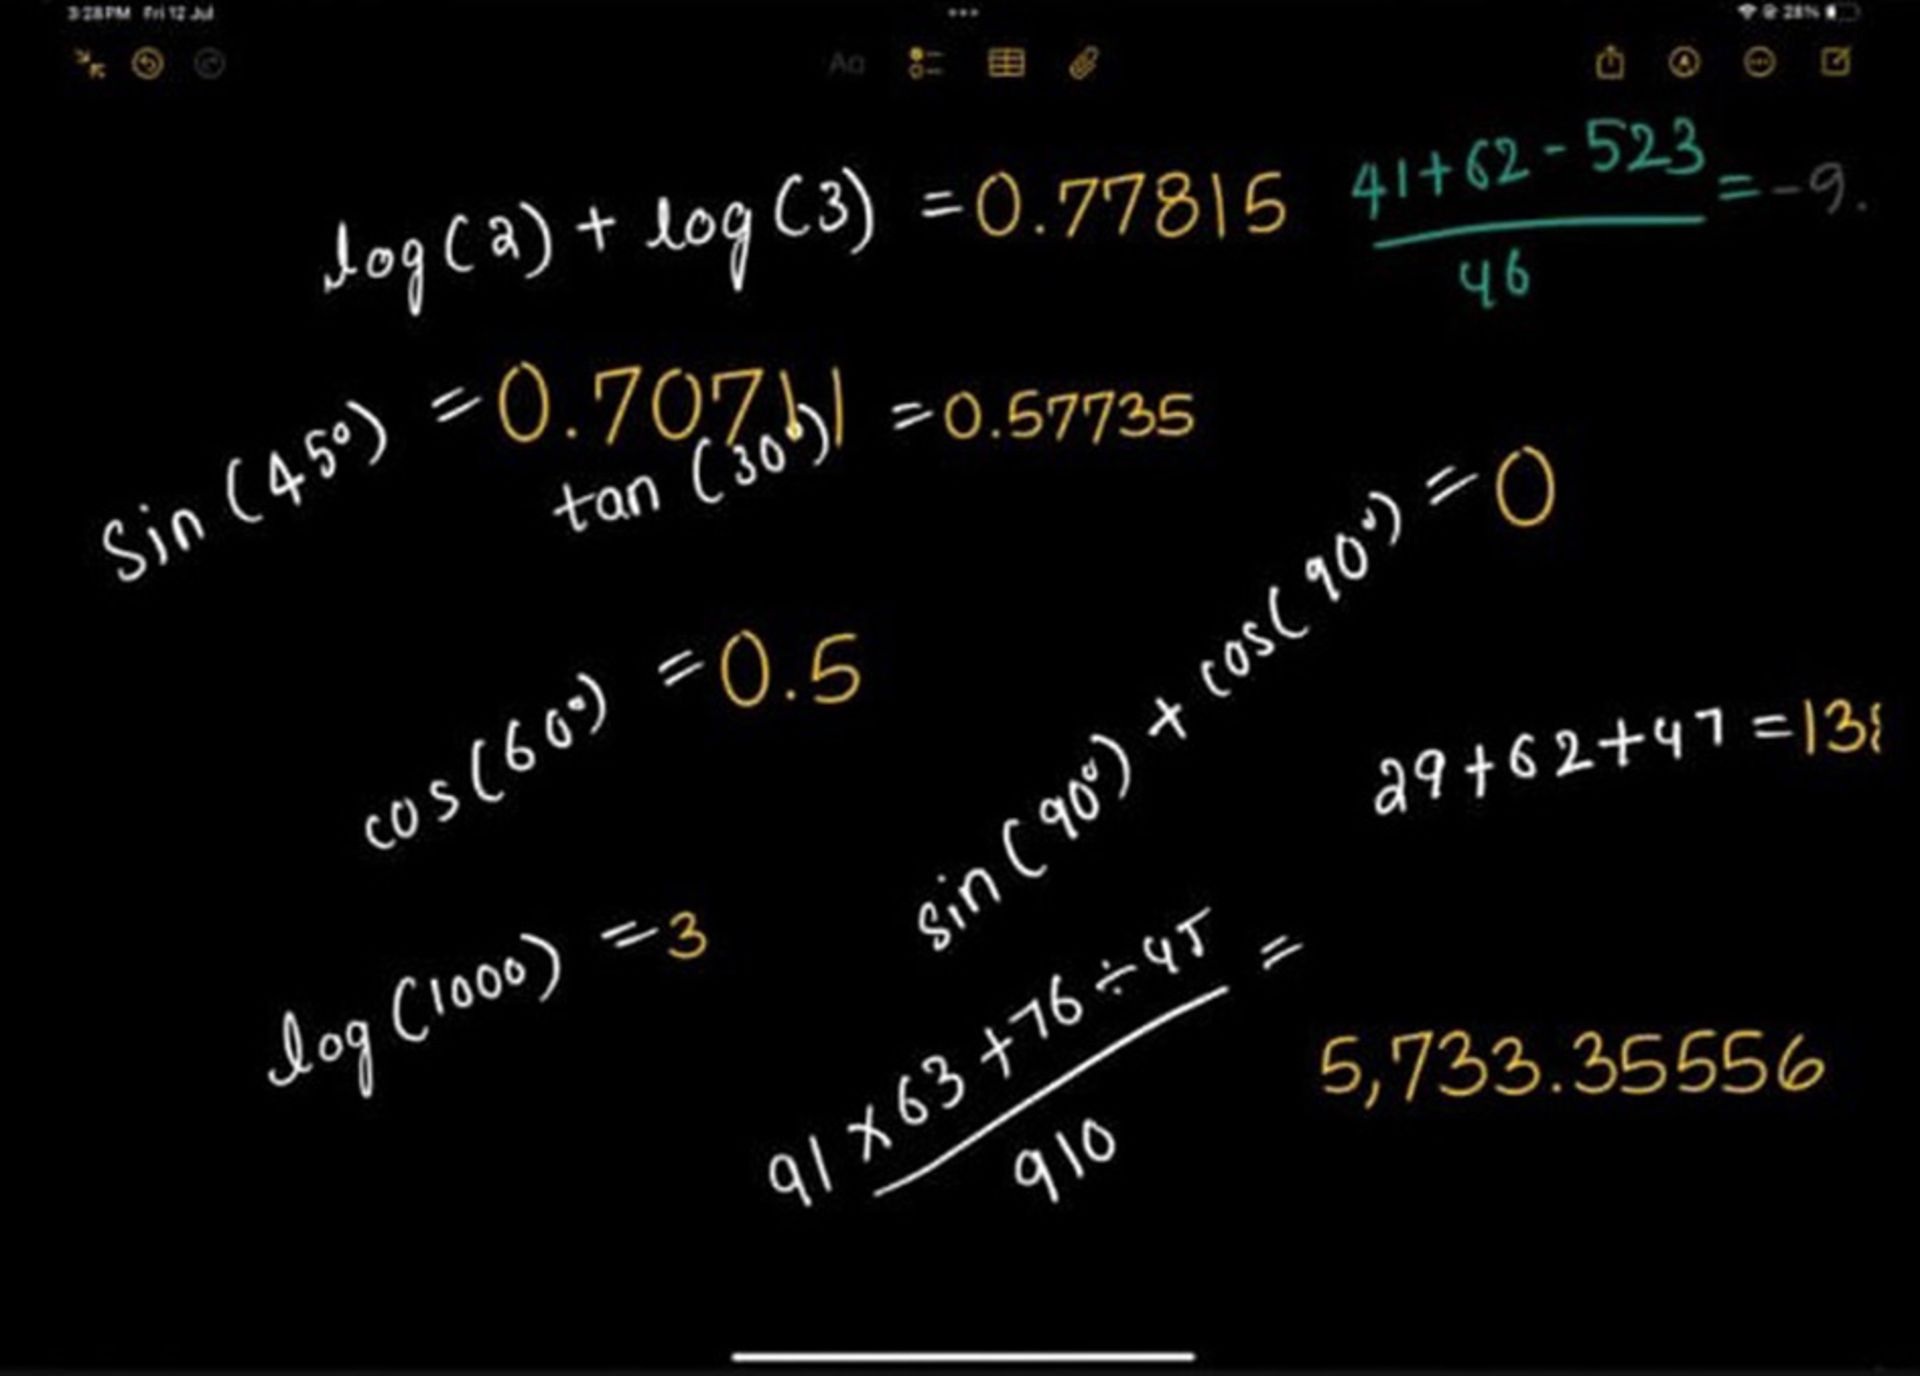 3:28 PM Fri 12 Jul
28%
Aa
log(2) + log(3) = 0.77815
41+62-523
46
= -9.
sin(45°) = 0.70711
tan(30°) = 0.57735
sin(90°) + cos(90°) = 0
cos(60°) = 0.5
29+62+47 = 138
log(1000) = 3
91 × 63 + 76 ÷ 45
910
=
5,733.35556